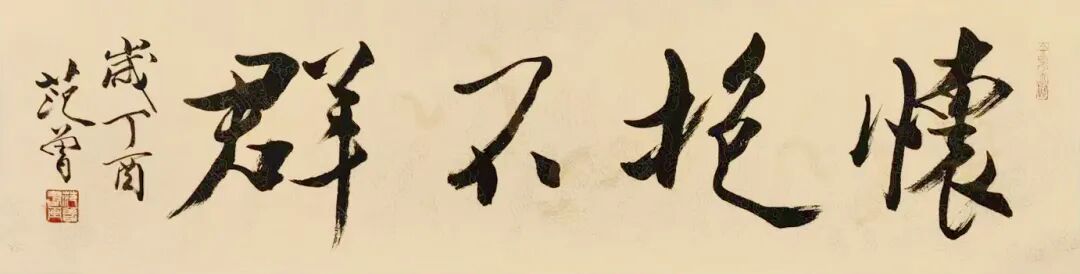 懷抱不群
歲丁酉
范曾